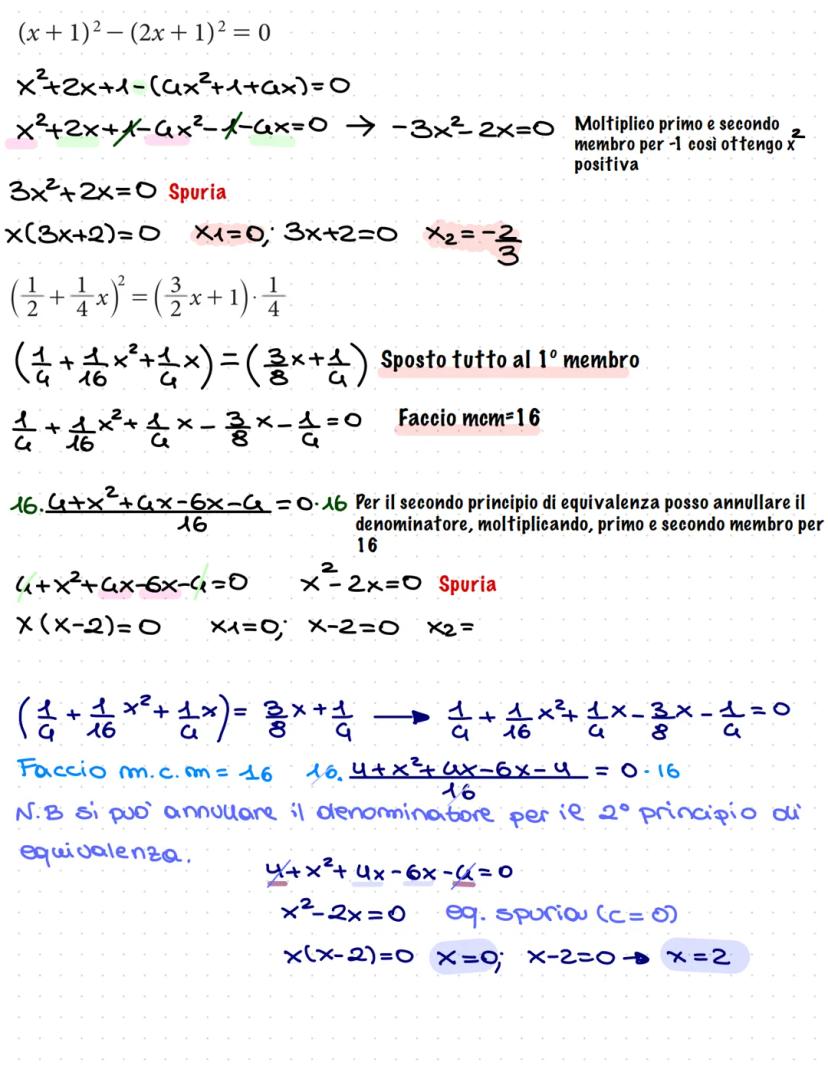 (x + 1)² − (2x + 1)² = 0
x²+2x+1−(4x²+1+4x)=0
x²+2x+1−4x²−1−4x=0 → −3x²−2x=0 Moltiplico primo e secondo membro per -1 così ottengo x² positiva
3x²+2x=0 Spuria
x(3x+2)=0 x1=0; 3x+2=0 x2=−2/3
(1/2 + 1/4 x)² = (3/2 x + 1) · 1/4
(1/4 + 1/16 x² + 1/4 x) = (3/8 x + 1/4) Sposto tutto al 1° membro
1/4 + 1/16 x² + 1/4 x − 3/8 x − 1/4 = 0 Faccio mcm=16
16· (4+x²+4x−6x−4)/16 = 0·16 Per il secondo principio di equivalenza posso annullare il denominatore, moltiplicando, primo e secondo membro per 16
4+x²+4x−6x−4=0 x²−2x=0 Spuria
x(x−2)=0 x1=0; x−2=0 x2=
(1/4 + 1/16 x² + 1/4 x) = 3/8 x + 1/4 → 1/4 + 1/16 x² + 1/4 x − 3/8 x − 1/4 = 0
Faccio m.c.m = 16 16· (4+x²+4x−6x−4)/16 = 0·16
N.B si può annullare il denominatore per il 2° principio di
equivalenza.
4+x²+4x−6x−4=0
x²−2x=0 eq. spuria (c=0)
x(x−2)=0 x=0; x−2=0 → x=2